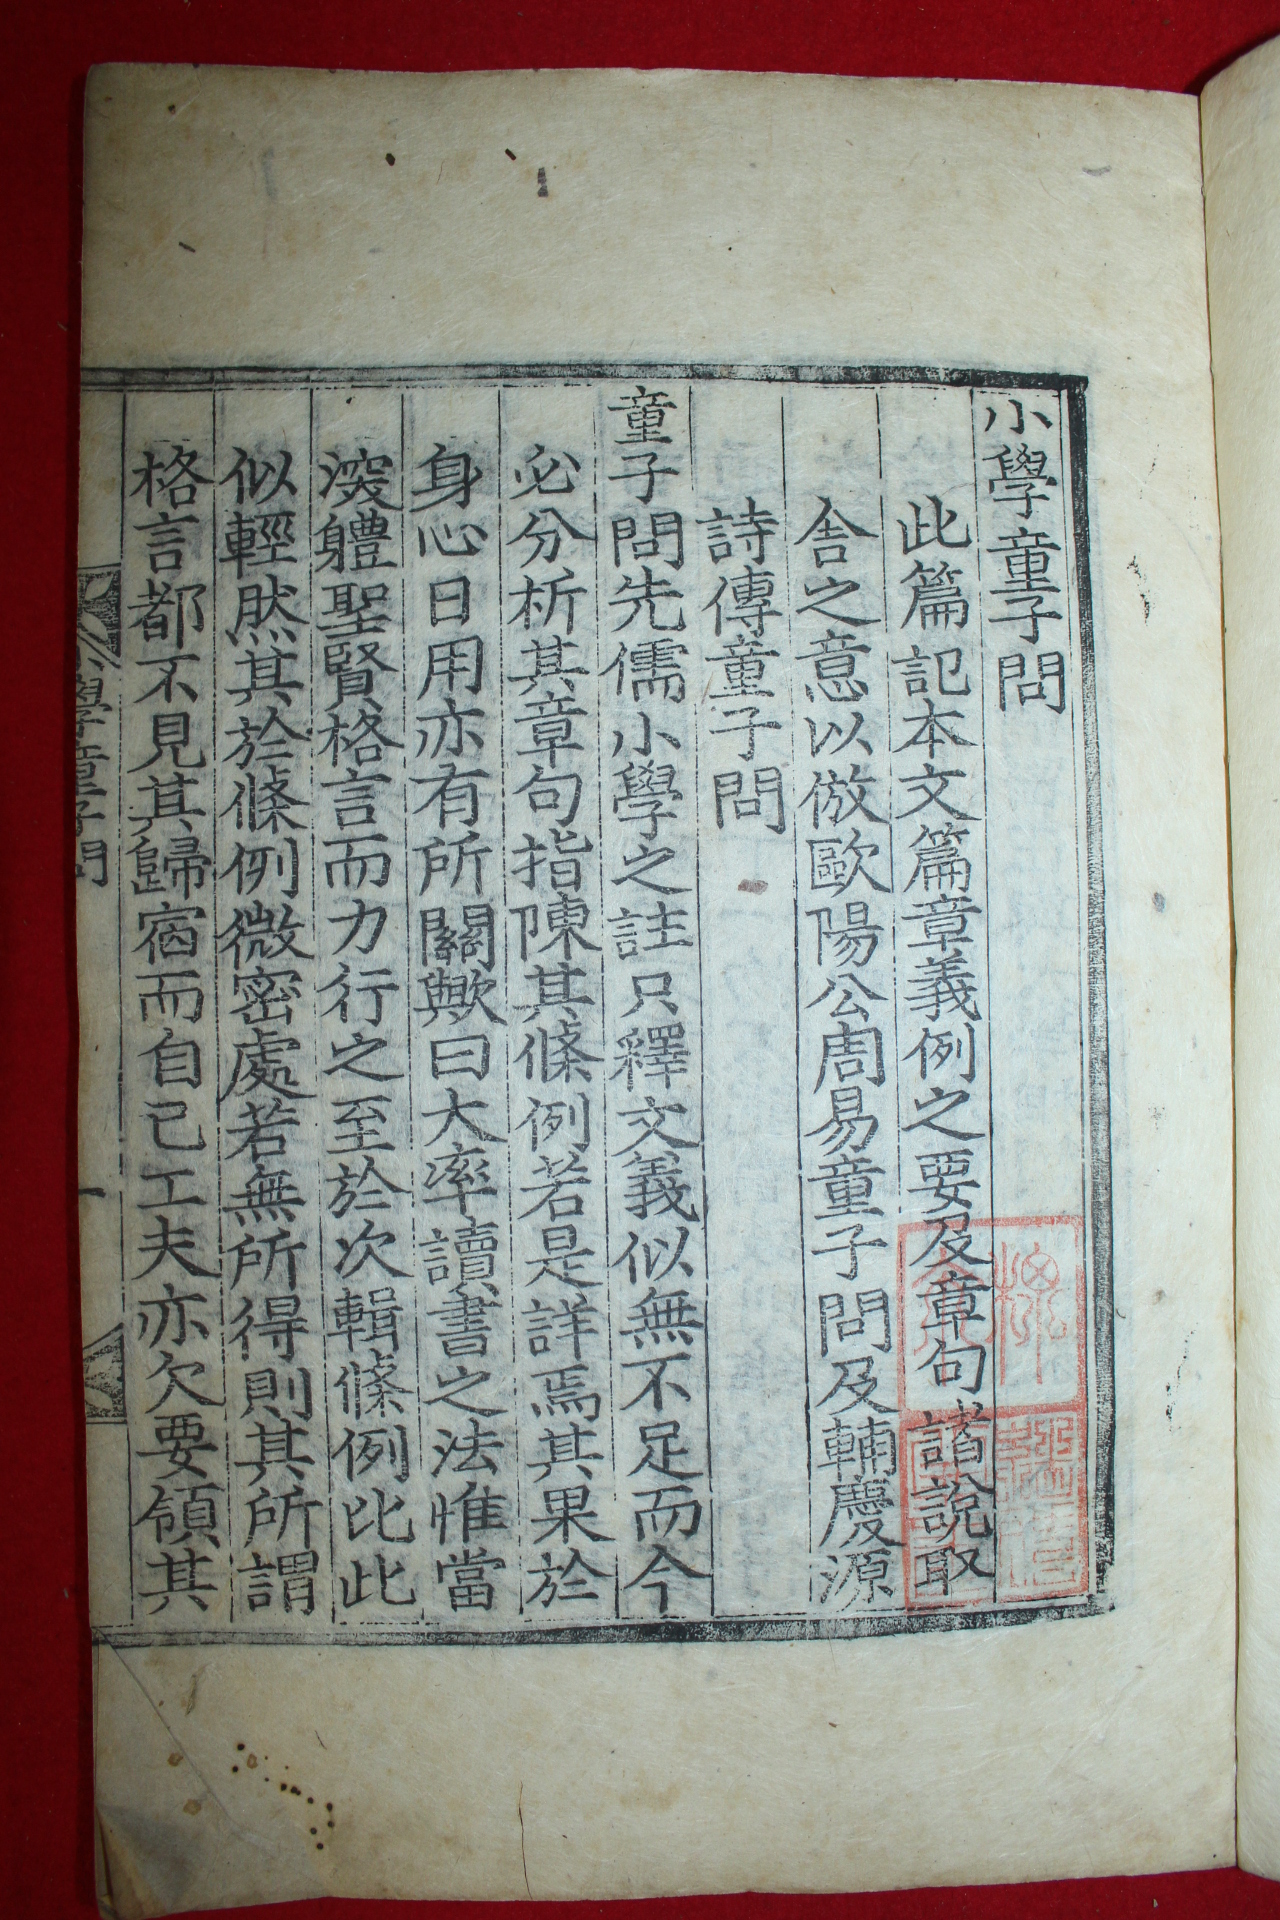 小學童子問
此篇記本文篇章義例之要及章句諸說取
舍之意以倣歐陽公周易童子問及輔慶源
詩傳童子問
童子問先儒小學之註只釋文義似無不足而今
必分析其章句指陳其條例若是詳焉其果於
身心日用亦有所關歟曰大率讀書之法惟當
深體聖賢格言而力行之至於次輯條例比此
似輕然其於條例微密處若無所得則其所謂
格言都不見其歸宿而自己工夫亦欠要領其
小學童子問
一